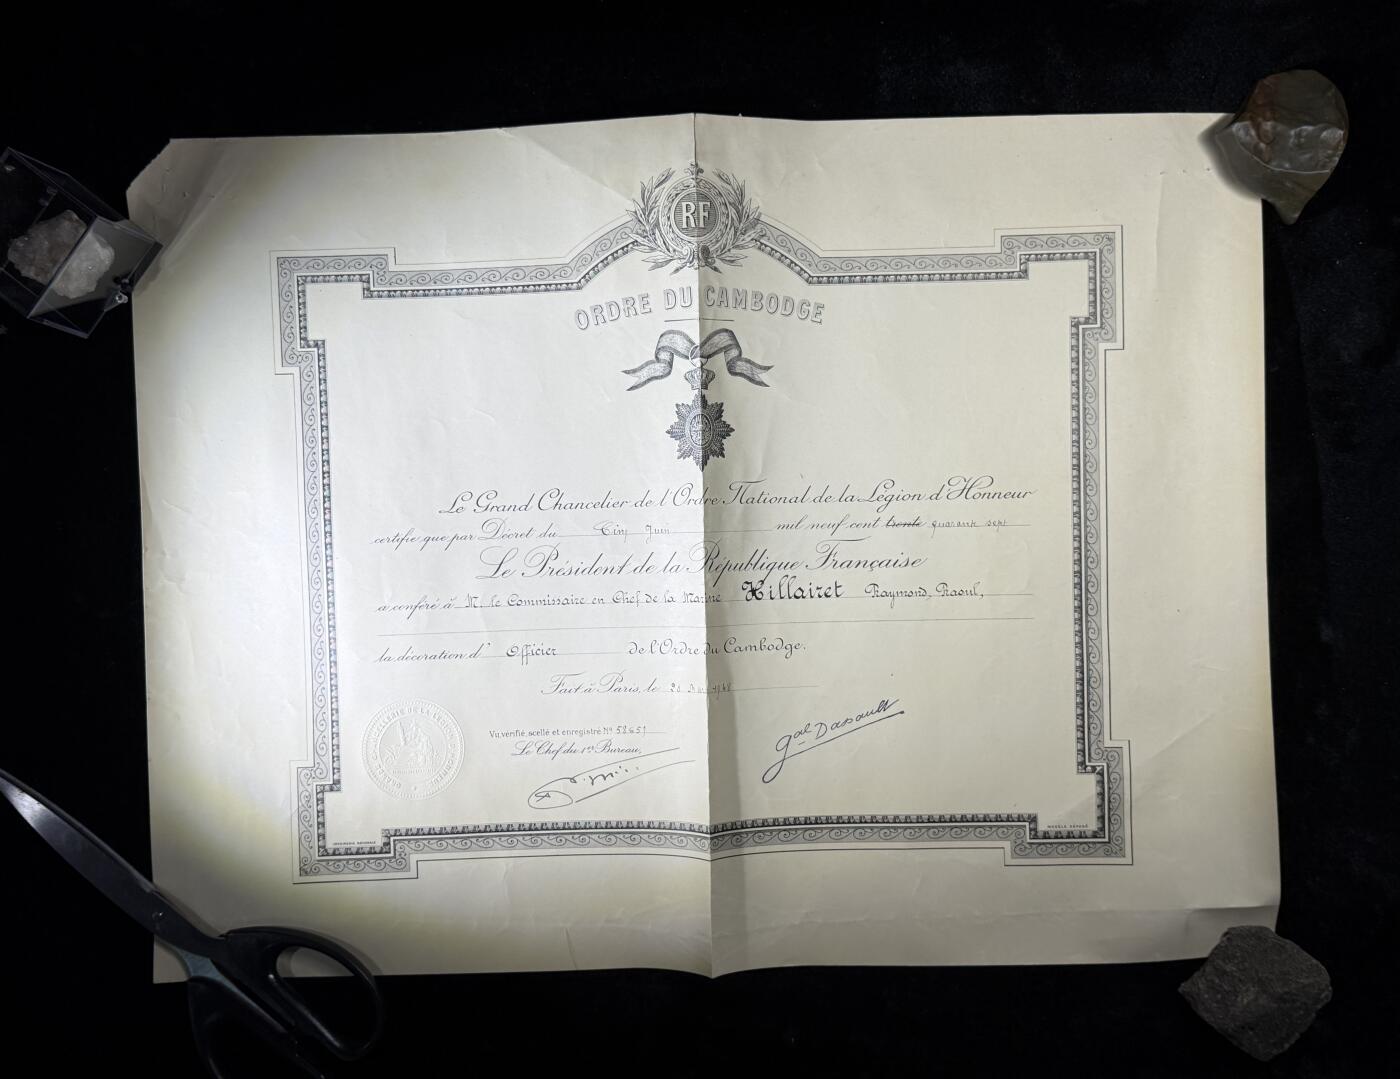 RF
ORDRE DU CAMBODGE
Le Grand Chancelier de l'Ordre National de la Légion d'Honneur
certifie que par Décret du Cinq Juin mil neuf cent trente quarante sept
Le Président de la République Française
a conféré à M. le Commissaire en Chef de la Marine Hillairet Raymond, Raoul,
la décoration d' Officier de l'Ordre du Cambodge.
Fait à Paris, le 20 1948
Vu, vérifié, scellé et enregistré Nº 58651
Le Chef du 1er Bureau,
gal Dassault
IMPRIMERIE NATIONALE
MODÈLE DÉPOSÉ